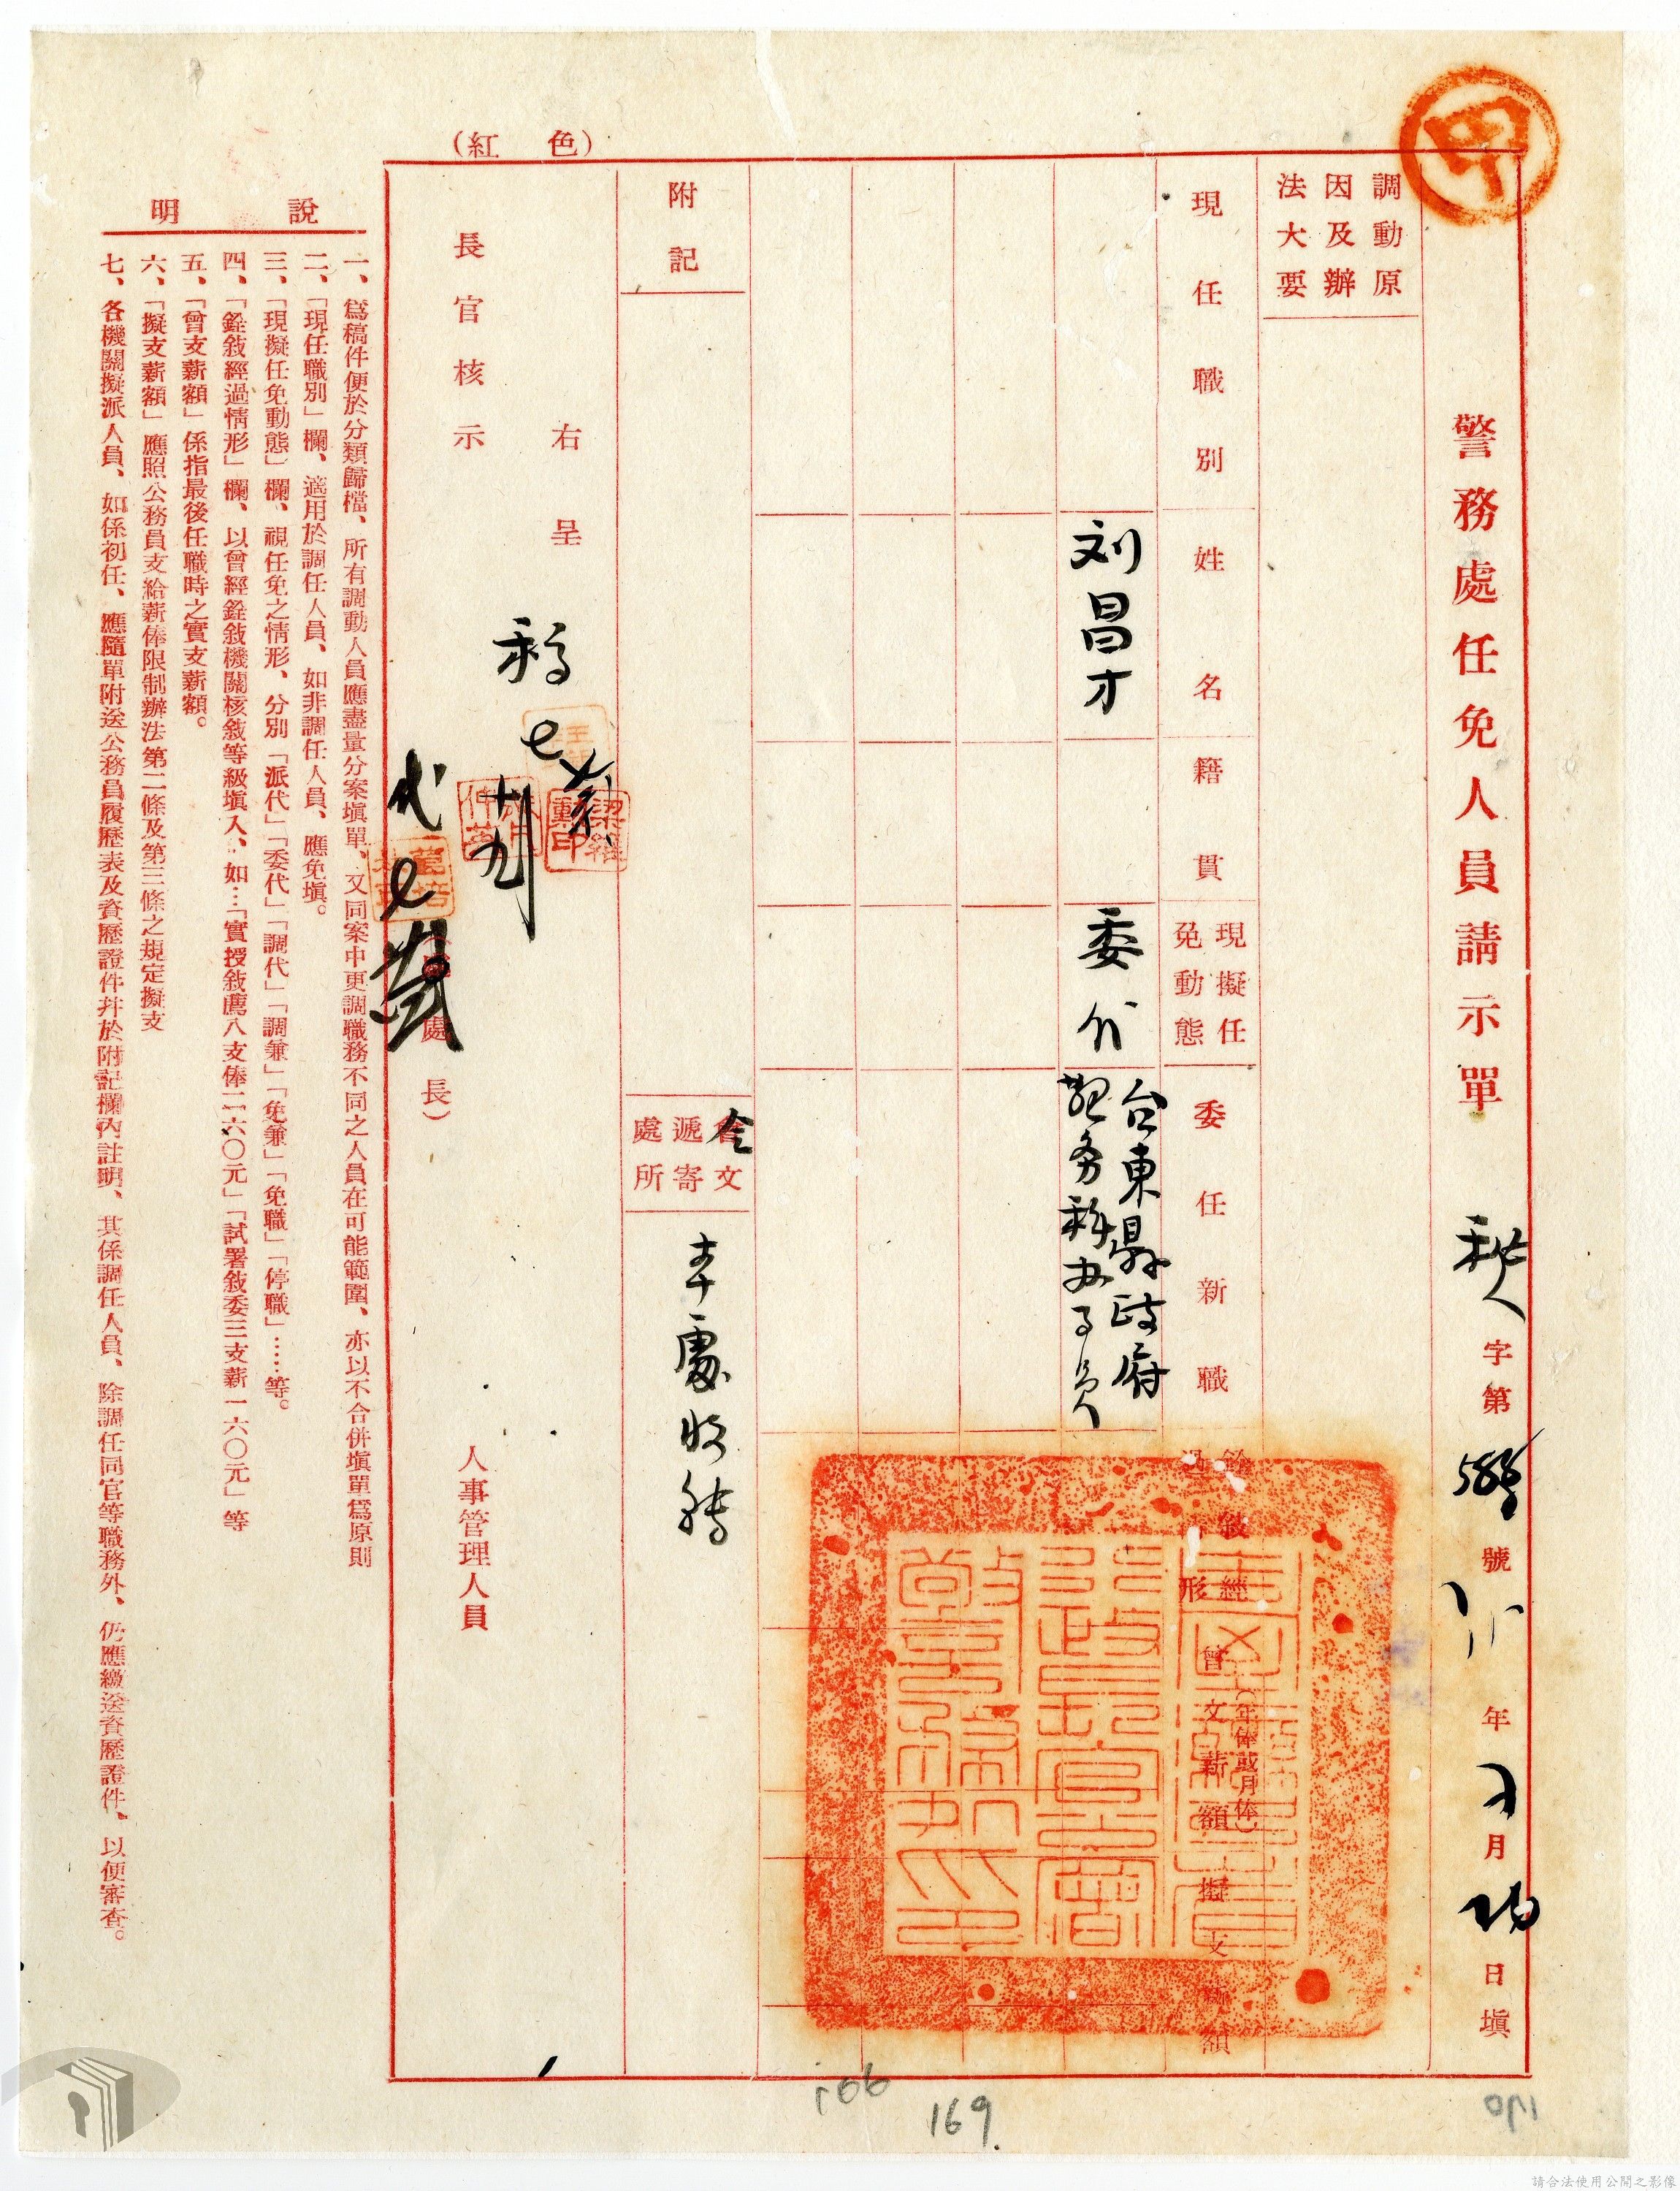 (紅色)
甲
警務處任免人員請示單
字第
號
年
月
日填
調動原
因及辦
法大要
現任職別
姓名
籍貫
現擬任
免動態
委任新職
銓敘經
過情形
曾支薪額
(年俸或月俸)
擬支薪額
刘昌才
委代
台東縣政府
警务科办事員
附記
令
文
遞寄
處所
本處收轉
右呈
長官核示
處長)
人事管理人員
梁維
勳印
說明
一、為稿件便於分類歸檔、所有調動人員應盡量分案填單、又同案中更調職務不同之人員在可能範圍、亦以不合併填單為原則
二、「現任職別」欄、適用於調任人員、如非調任人員、應免填。
三、「現擬任免動態」欄、視任免之情形、分別「派代」「委代」「調代」「調兼」「免兼」「免職」「停職」……等。
四、「銓敘經過情形」欄、以曾經銓敘機關核敘等級填入、如…「實授敘薦八支俸二六〇元」「試署敘委三支薪一六〇元」等
五、「曾支薪額」係指最後任職時之實支薪額。
六、「擬支薪額」應照公務員支給薪俸限制辦法第二條及第三條之規定擬支
七、各機關擬派人員、如係初任、應隨單附送公務員履歷表及資歷證件并於附記欄內註明、其係調任人員、除調任同官等職務外、仍應繳送資歷證件、以便審查。
169
請合法使用公開之影像